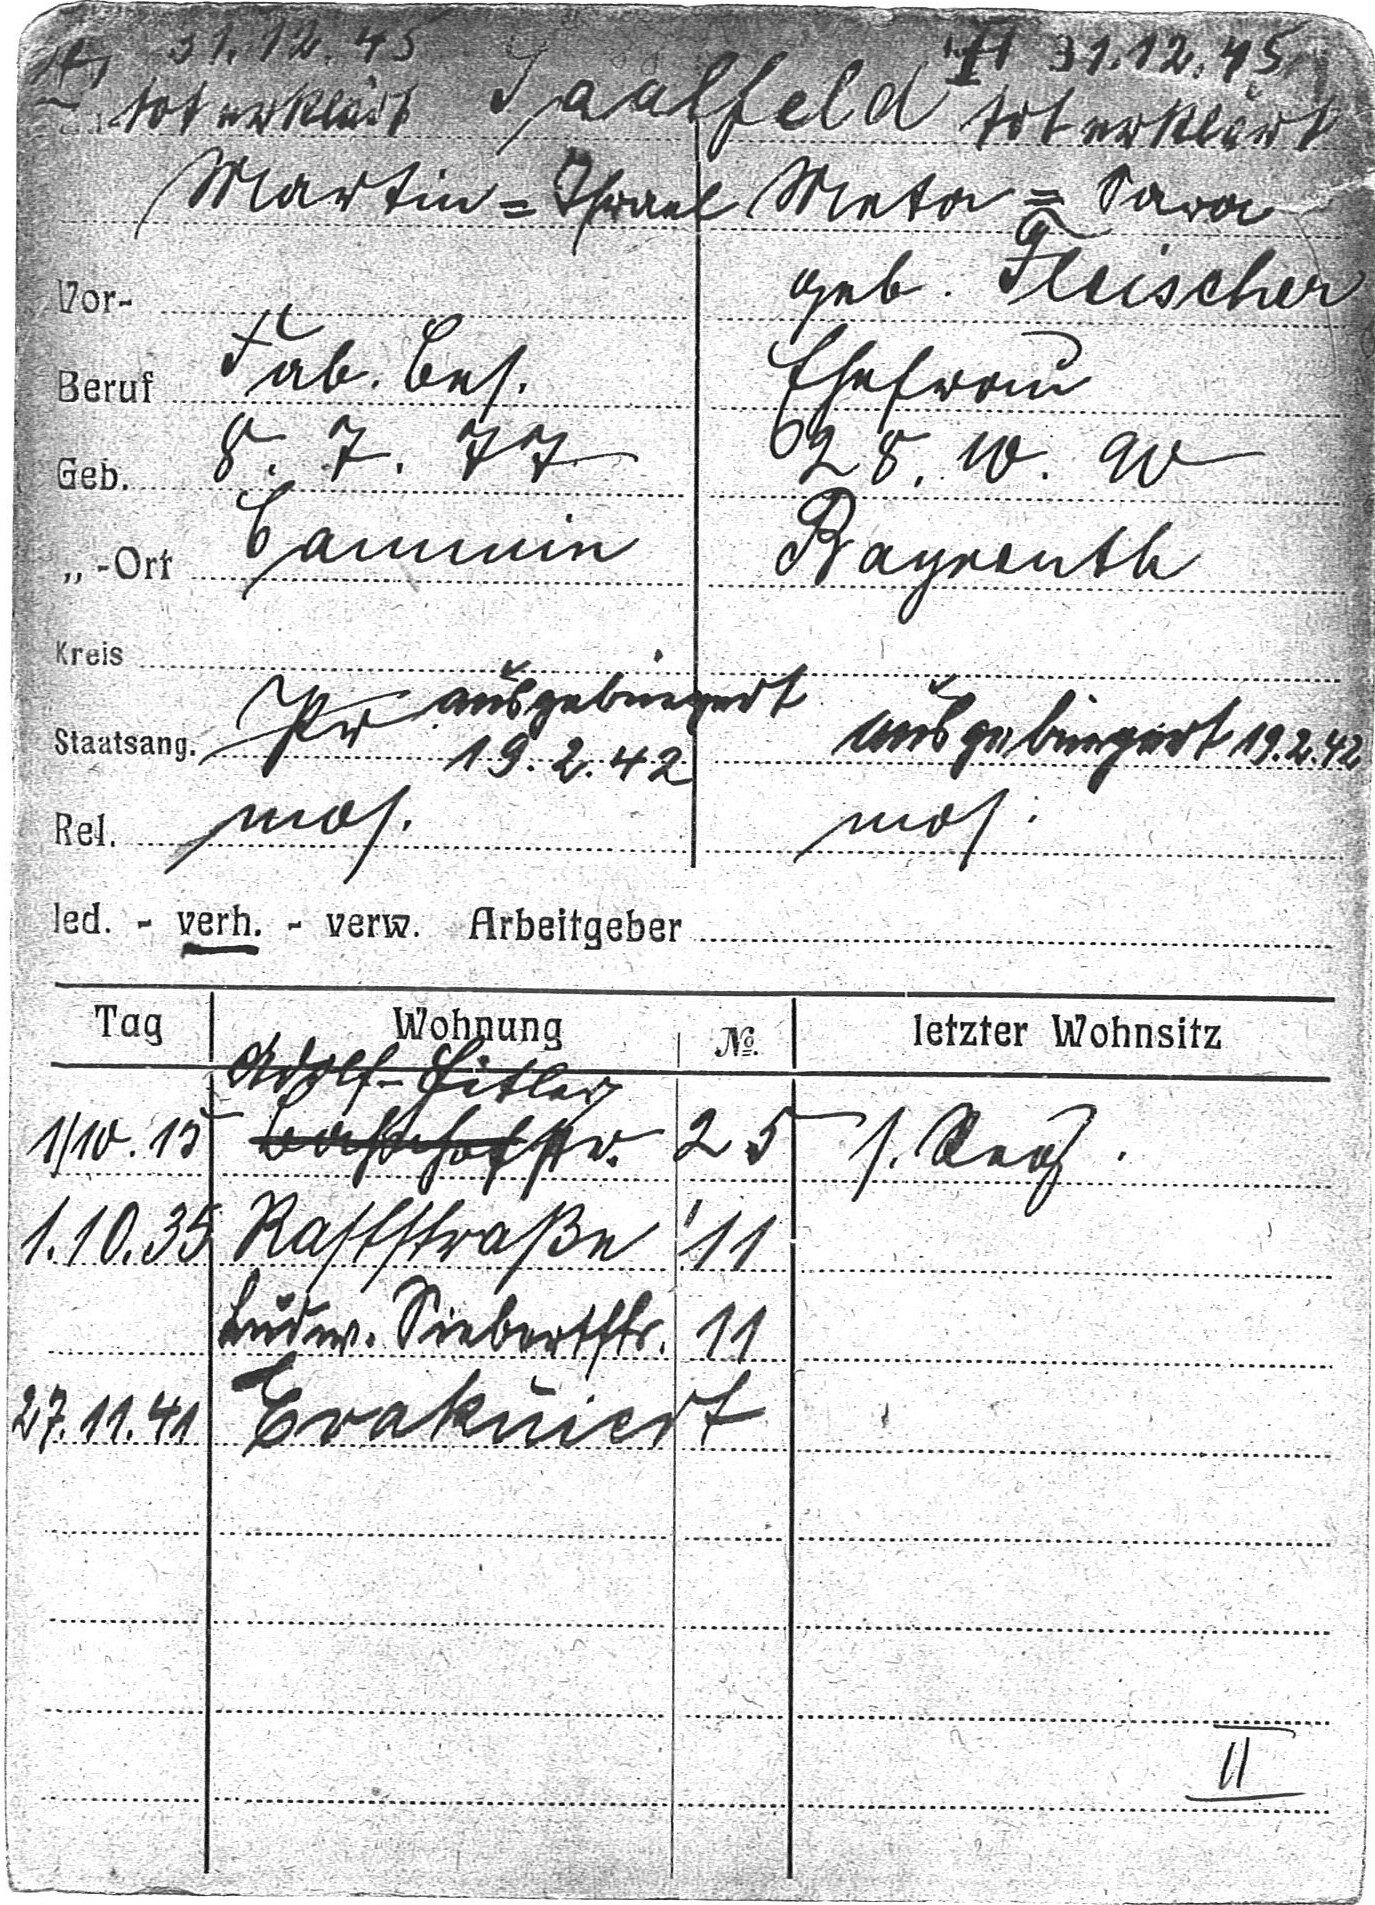 31.12.45 Saalfeld 31.12.45
tot erklärt tot erklärt
Martin = Israel Meta = Sara
Vor- geb. Fleischer
Beruf Fab. Bes. Ehefrau
Geb. 8. 7. 77 28. 10. 90
„ -Ort Cammin Bayreuth
Kreis
Staatsang. Pr ausgebürgert ausgebürgert 19.2.42
19.2.42
Rel. mos. mos.
led. - verh. - verw. Arbeitgeber
Tag Wohnung No. letzter Wohnsitz
Adolf-Hitler
1/10.15 Bahnhofstr. 25 s.
1.10.35 Raststraße 11
Ludw. Siebertstr. 11
27.11.41 Evakuiert
II